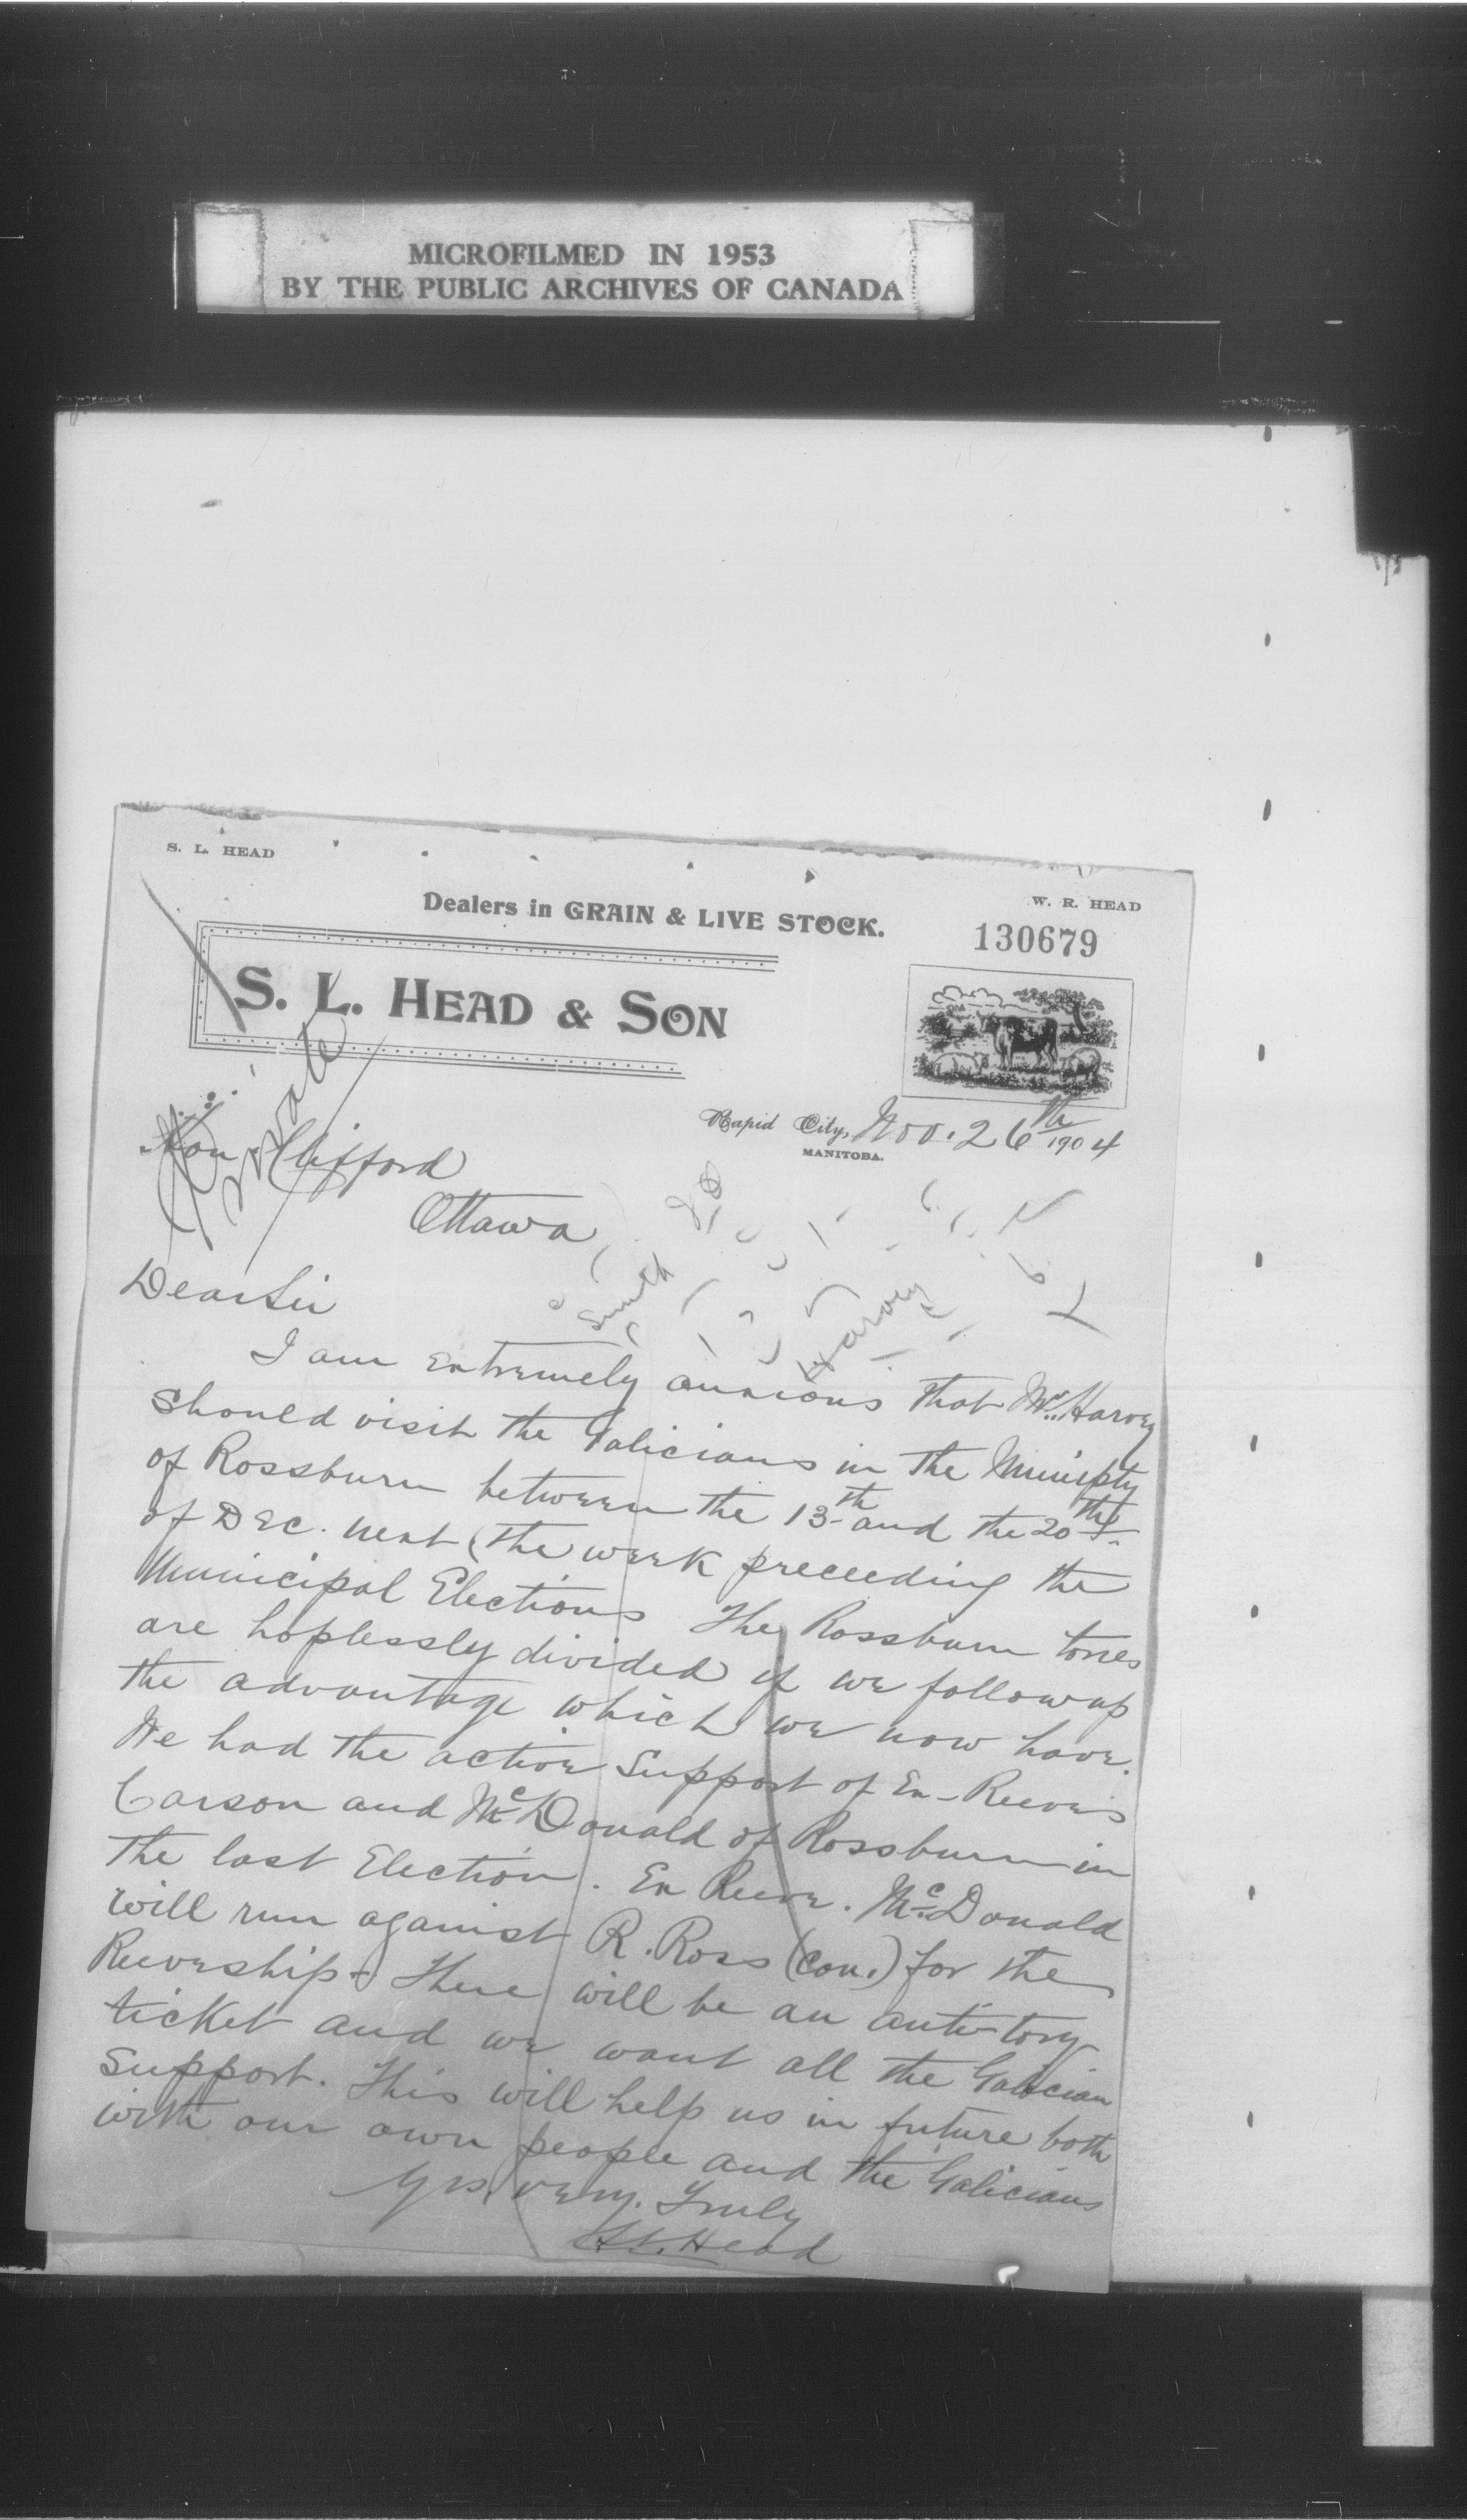 MICROFILMED IN 1953
BY THE PUBLIC ARCHIVES OF CANADA
S. L. HEAD
W. R. HEAD
Dealers in GRAIN & LIVE STOCK.
130679
S. L. HEAD & SON
Private
Rapid City, Nov. 26th 1904
MANITOBA.
Hon Clifford
Ottawa
Smith
Harvey
Dear Sir
I am extremely anxious that Mr. Harvey
should visit the Galicians in the Municipty
of Rossburn between the 13th and the 20th
of Dec. next (the week preceeding the
Municipal Elections The Rossburn tories
are hoplessly divided if we follow up
the advantage which we now have.
We had the active support of Ex-Reeves
Carson and McDonald of Rossburn in
the last Election. Ex Reeve. McDonald
will run against R. Ross (con.) for the
Reeveship. There will be an anti-tory
ticket and we want all the Galician
support. This will help us in future both
with our own people and the Galicians
Yrs. very. Truly
S.L. Head